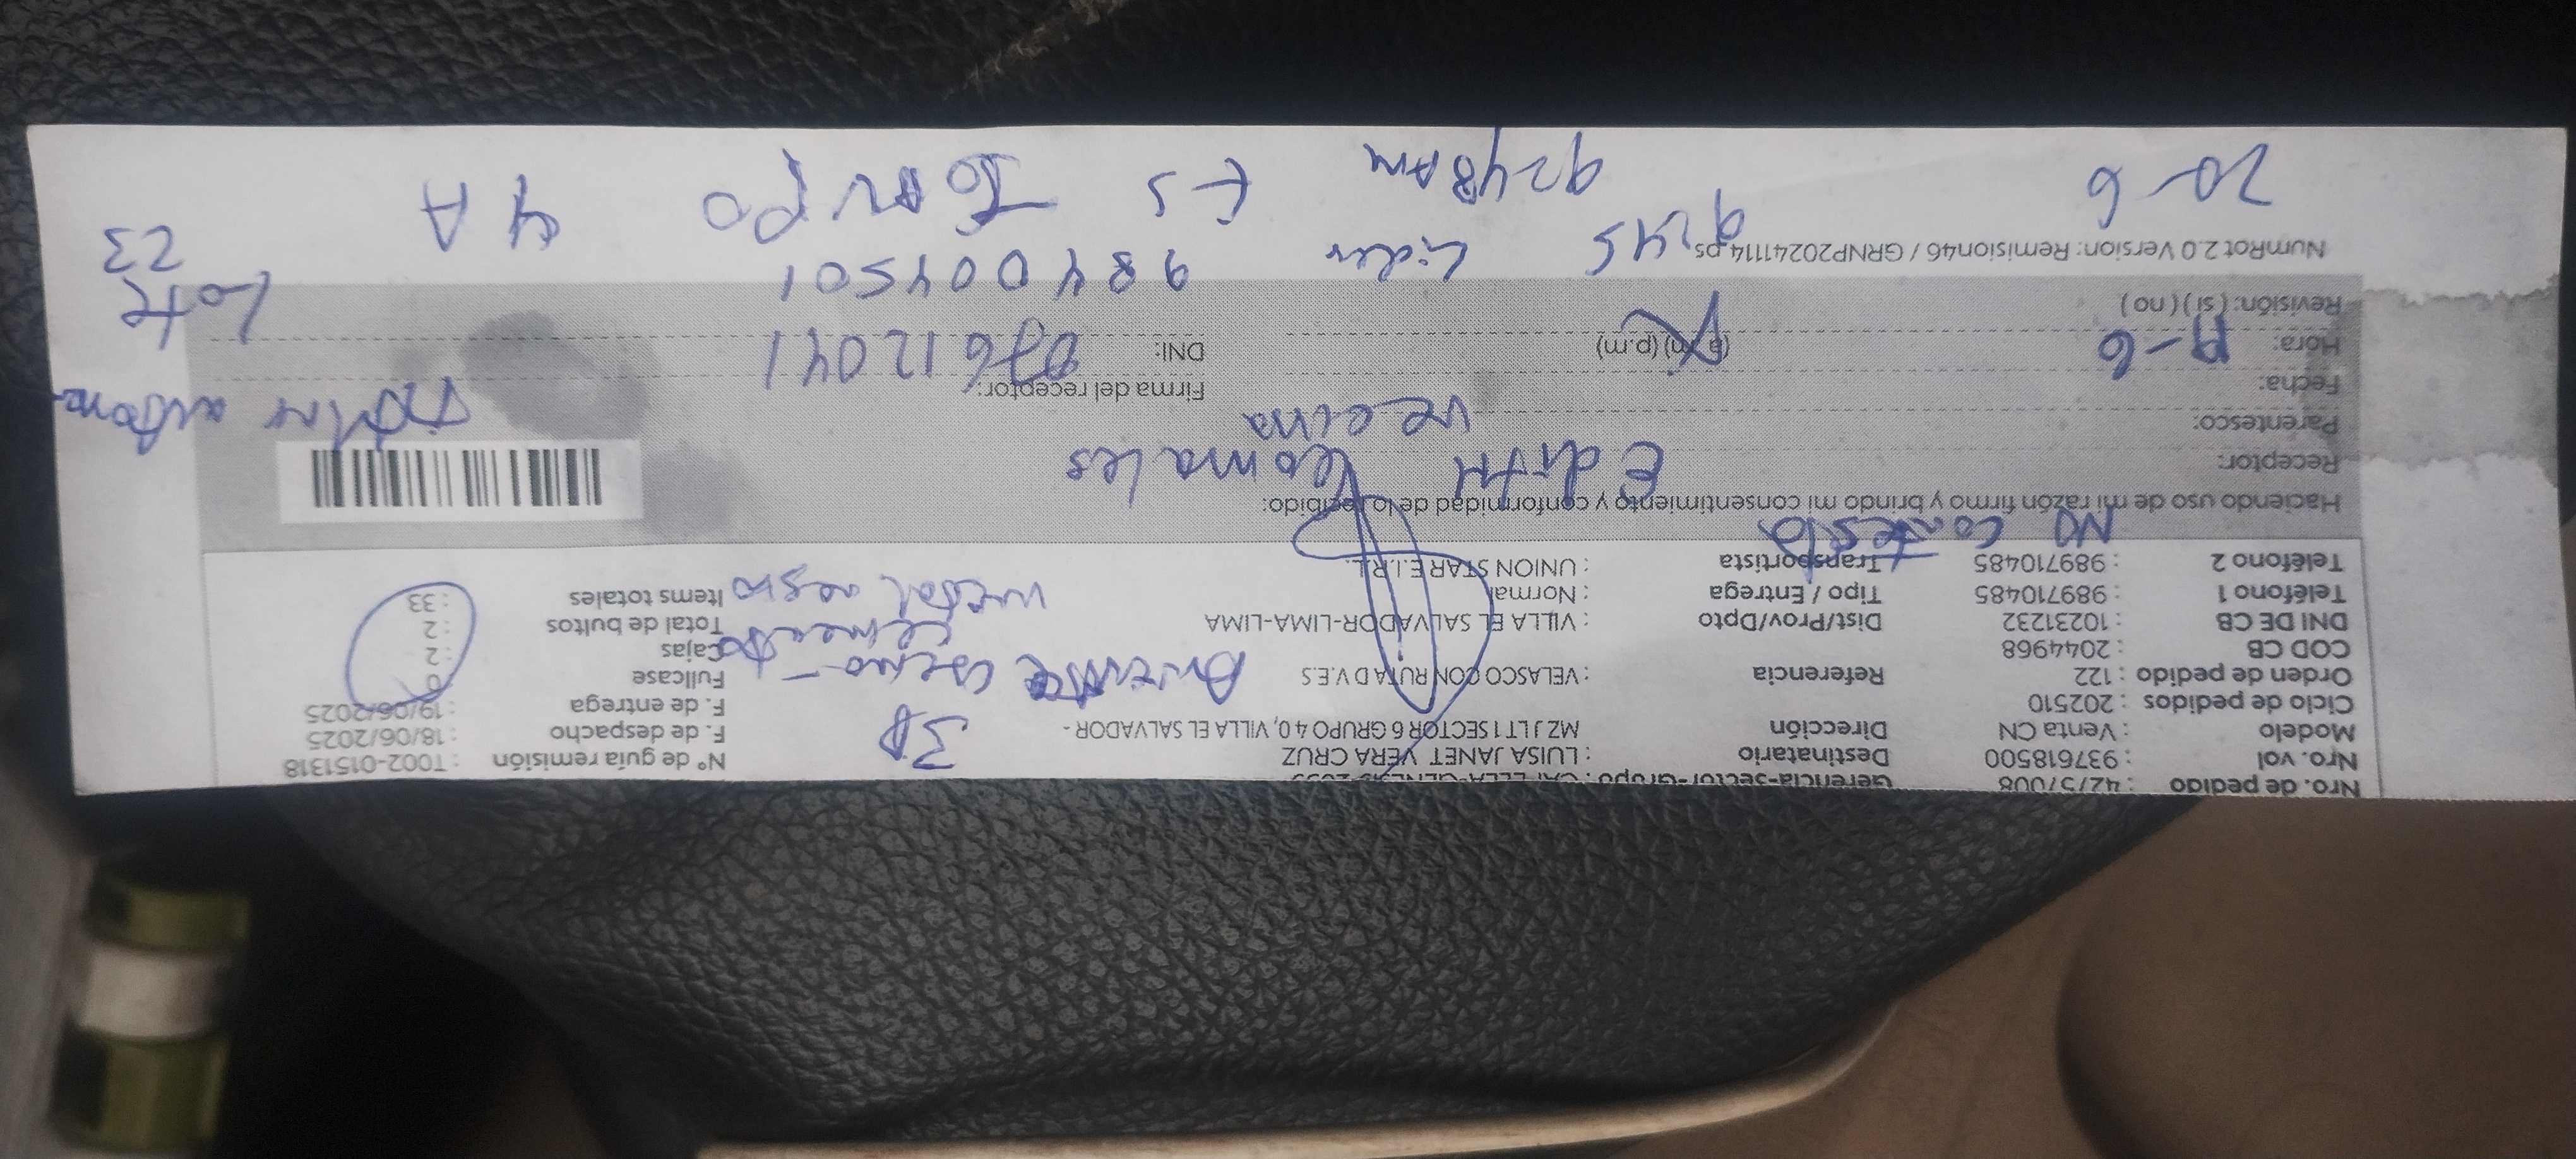 Nro. de pedido : 42757008
Nro. vol : 937618500
Modelo : Venta CN
Ciclo de pedidos : 202510
Orden de pedido : 122
COD CB : 2044968
DNI DE CB : 10231232
Teléfono 1 : 989710485
Teléfono 2 : 989710485
Gerencia-Sector-Grupo :
Destinatario : LUISA JANET VERA CRUZ
Dirección MZ J LT 1 SECTOR 6 GRUPO 4 0, VILLA EL SALVADOR -
Referencia : VELASCO CON RUTA D V.E.S
Dist/Prov/Dpto : VILLA EL SALVADOR-LIMA-LIMA
Tipo / Entrega : Normal
Transportista : UNION STAR E.I.R.L.
N° de guía remisión : T002-0151318
F. de despacho : 18/06/2025
F. de entrega : 19/06/2025
Fullcase : 0
Cajas : 2
Total de bultos : 2
Items totales : 33
3P
cemento
metal negro
NO contesta
Haciendo uso de mi razón firmo y brindo mi consentimiento y conformidad de lo recibido:
Receptor: Edith
Parentesco: vecina
Fecha:
Hora: (a.m) (p.m)
Revisión: ( si ) ( no )
Firma del receptor:
DNI: 07612041
984004501
Lote
23
NumRot 2.0 Version: Remision46 / GRNP20241114.ps
9:45 Lider
20-6 9:48 AM ES 4 A